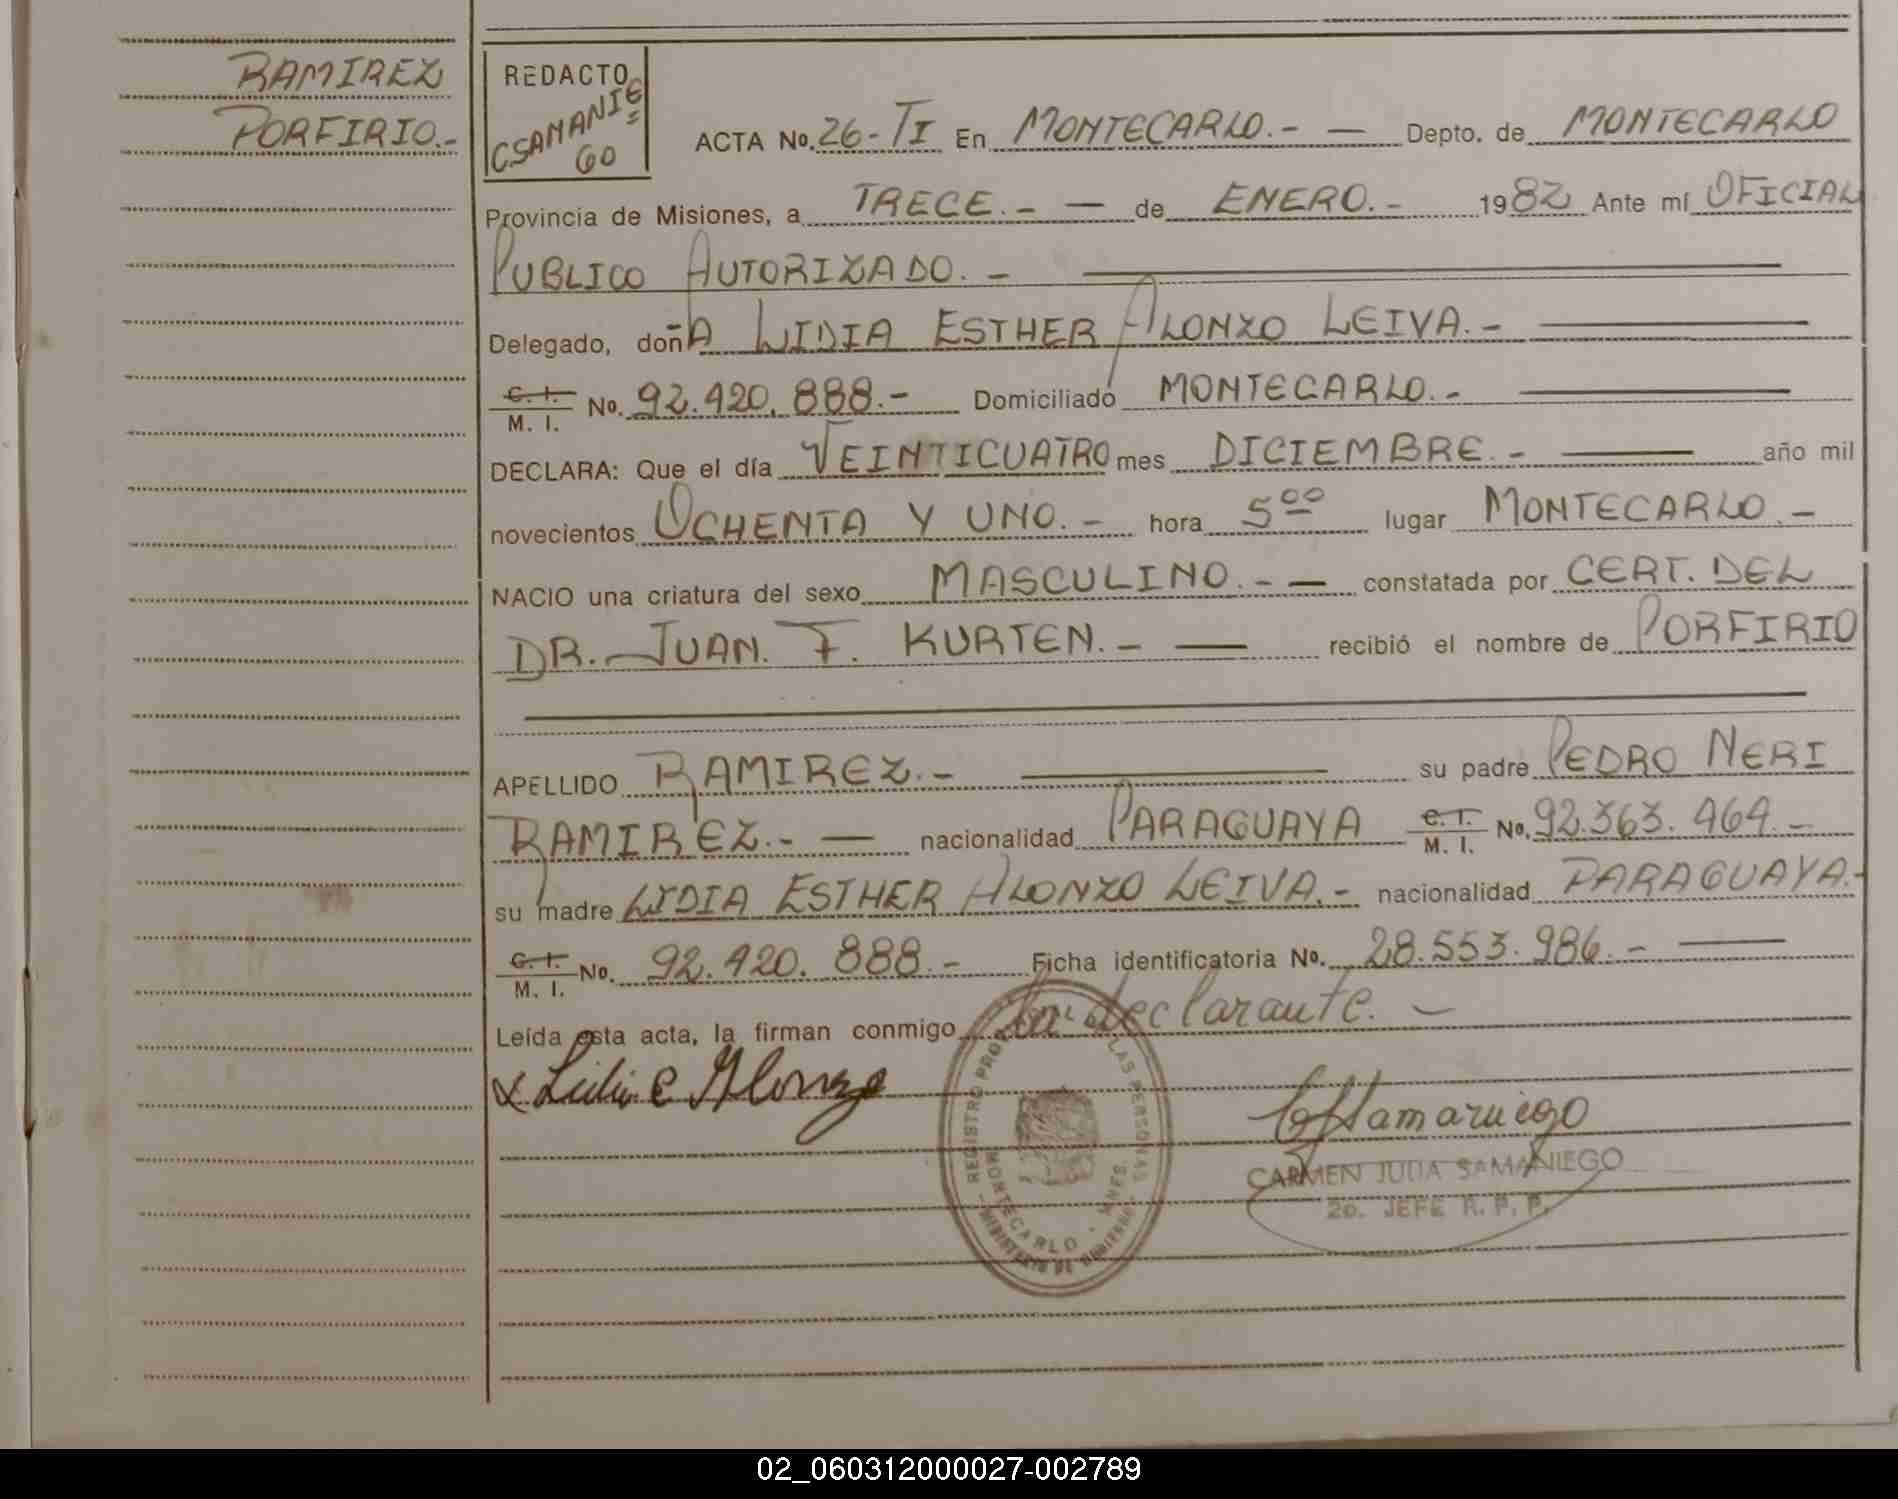 RAMIREZ
PORFIRIO.-
REDACTO
CSAMANIE=
GO
ACTA No. 26-TI En MONTECARLO.- — Depto. de MONTECARLO
Provincia de Misiones, a TRECE.- — de ENERO.- 1982 Ante mí OFICIAL
PUBLICO AUTORIZADO.-
Delegado, doñA LIDIA ESTHER ALONZO LEIVA.-
C. I. / M. I. No. 92.420.888.- Domiciliado MONTECARLO.-
DECLARA: Que el día VEINTICUATRO mes DICIEMBRE.- año mil
novecientos OCHENTA Y UNO.- hora 5 00 lugar MONTECARLO.-
NACIO una criatura del sexo MASCULINO.- — constatada por CERT. DEL
DR. JUAN. F. KURTEN.- — recibió el nombre de PORFIRIO
APELLIDO RAMIREZ.- su padre PEDRO NERI
RAMIREZ.- — nacionalidad PARAGUAYA C. I. / M. I. No. 92.363.464.-
su madre LIDIA ESTHER ALONZO LEIVA.- nacionalidad PARAGUAYA.-
C. I. / M. I. No. 92.420.888.- Ficha identificatoria No. 28.553.986.-
Leída esta acta, la firman conmigo la declarante.-
x Lidia E Alonzo
CJSamaniego
CARMEN JULIA SAMANIEGO
2o. JEFE R. P. P.
REGISTRO PROV. LAS PERSONAS
MONTECARLO - MNES.
MINISTERIO DE GOBIERNO
02_060312000027-002789